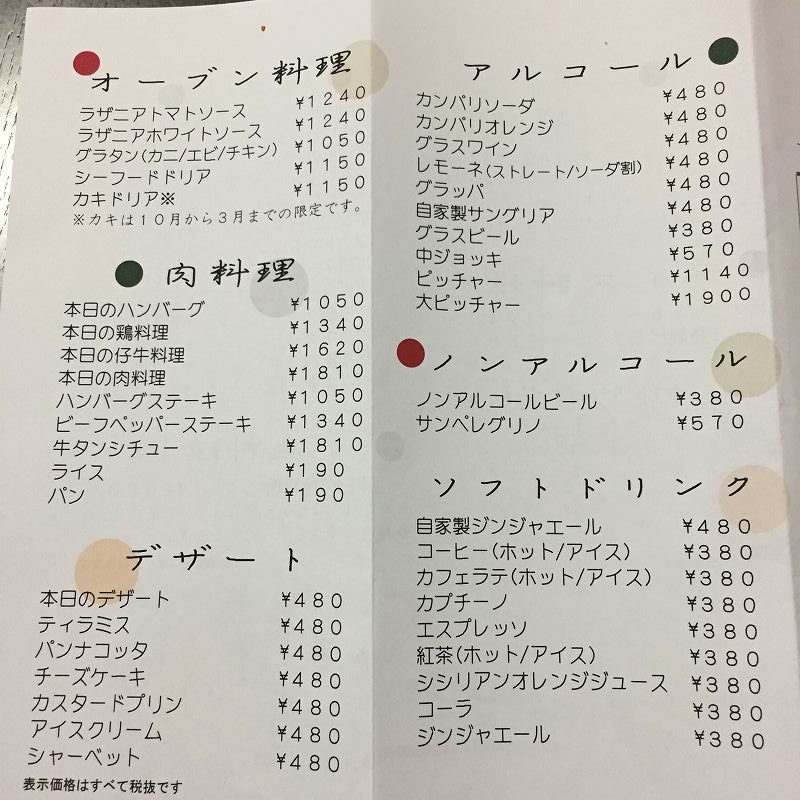 オーブン料理
ラザニアトマトソース ¥1240
ラザニアホワイトソース ¥1240
グラタン(カニ/エビ/チキン) ¥1050
シーフードドリア ¥1150
カキドリア※ ¥1150
※カキは10月から3月までの限定です。
肉料理
本日のハンバーグ ¥1050
本日の鶏料理 ¥1340
本日の仔牛料理 ¥1620
本日の肉料理 ¥1810
ハンバーグステーキ ¥1050
ビーフペッパーステーキ ¥1340
牛タンシチュー ¥1810
ライス ¥190
パン ¥190
デザート
本日のデザート ¥480
ティラミス ¥480
パンナコッタ ¥480
チーズケーキ ¥480
カスタードプリン ¥480
アイスクリーム ¥480
シャーベット ¥480
表示価格はすべて税抜です
アルコール
カンパリソーダ ¥480
カンパリオレンジ ¥480
グラスワイン ¥480
レモーネ(ストレート/ソーダ割) ¥480
グラッパ ¥480
自家製サングリア ¥480
グラスビール ¥380
中ジョッキ ¥570
ピッチャー ¥1140
大ピッチャー ¥1900
ノンアルコール
ノンアルコールビール ¥380
サンペレグリノ ¥570
ソフトドリンク
自家製ジンジャエール ¥480
コーヒー(ホット/アイス) ¥380
カフェラテ(ホット/アイス) ¥380
カプチーノ ¥380
エスプレッソ ¥380
紅茶(ホット/アイス) ¥380
シシリアンオレンジジュース ¥380
コーラ ¥380
ジンジャエール ¥380